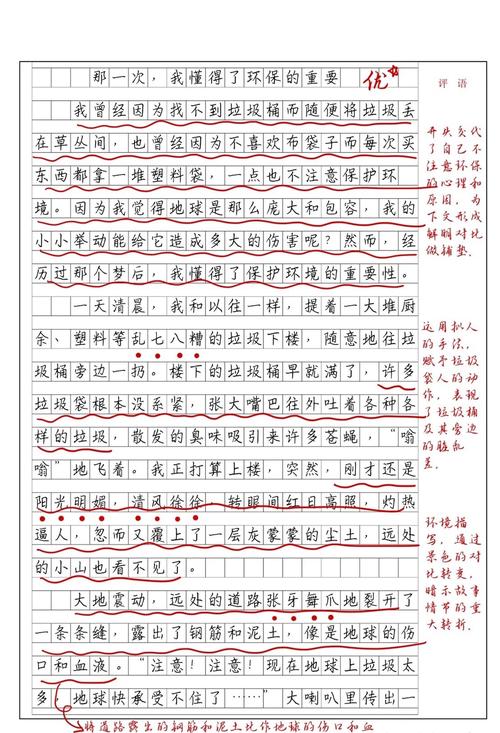 那一次，我懂得了环保的重要
优
评语
我曾经因为找不到垃圾桶而随便将垃圾丢
在草丛间，也曾经因为不喜欢布袋子而每次买
东西都拿一堆塑料袋，一点也不注意保护环
境。因为我觉得地球是那么庞大和包容，我的
小小举动能给它造成多大的伤害呢？然而，经
历过那个梦后，我懂得了保护环境的重要性。
一天清晨，我和以往一样，提着一大堆厨
余、塑料等乱七八糟的垃圾下楼，随意地往垃
圾桶旁边一扔。楼下的垃圾桶早就满了，许多
垃圾袋根本没系紧，张大嘴巴往外吐着各种各
样的垃圾，散发的臭味吸引来许多苍蝇，“嗡
嗡”地飞着。我正打算上楼，突然，刚才还是
阳光明媚，清风徐徐，转眼间红日高照，灼热
逼人，忽而又覆上了一层灰蒙蒙的尘土，远处
的小山也看不见了。
大地震动，远处的道路张牙舞爪地裂开了
一条条缝，露出了钢筋和泥土，像是地球的伤
口和血液。“注意！注意！现在地球上垃圾太
多，地球快承受不住了……”大喇叭里传出一
开头交代
了自己不
注意环保
的心理和
原因，为
下文形成
鲜明对比
做铺垫.
运用拟人
的手法，
赋予垃圾
袋人的动
作，表现
了垃圾桶
及其旁边
的脏乱
差.
环境描
写，通过
景色的对
比转变，
暗示故事
情节的重
大转折.
将道路露出的钢筋和泥土比作地球的伤口和血